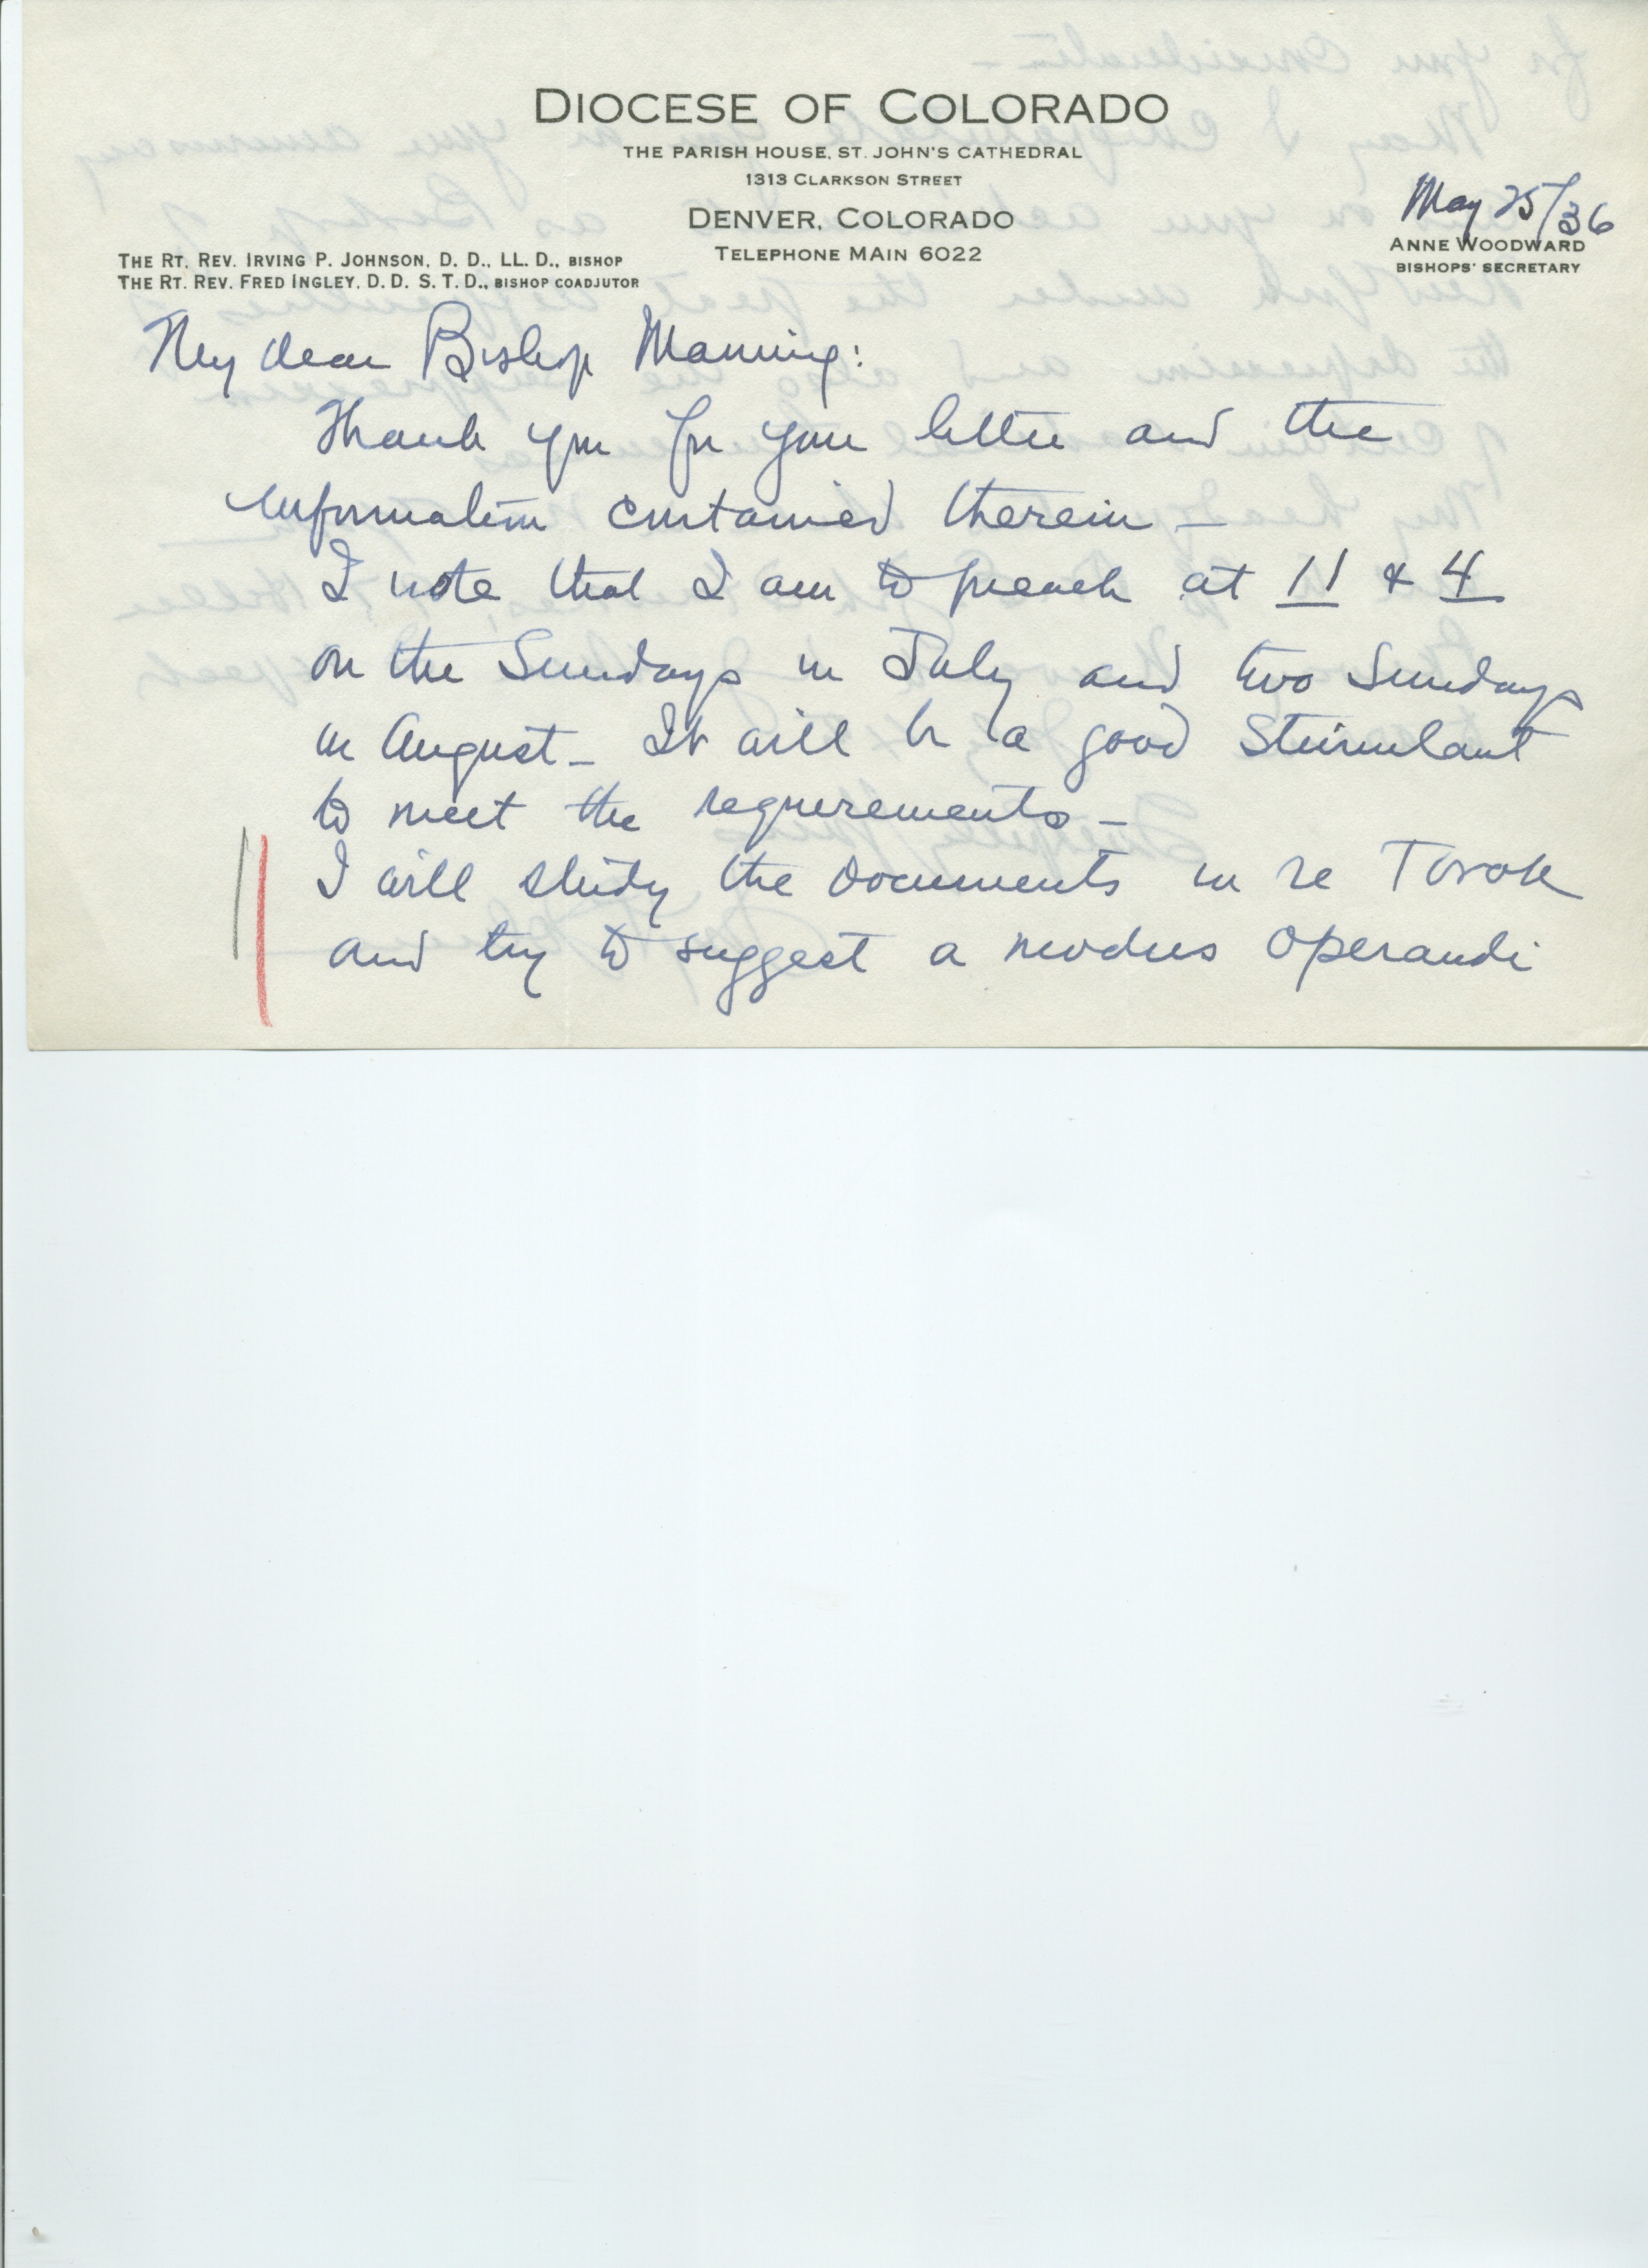 DIOCESE OF COLORADO
THE PARISH HOUSE, ST. JOHN'S CATHEDRAL
1313 CLARKSON STREET
DENVER, COLORADO
TELEPHONE MAIN 6022
May 25/36
ANNE WOODWARD
BISHOPS' SECRETARY
THE RT. REV. IRVING P. JOHNSON, D. D., LL. D., BISHOP
THE RT. REV. FRED INGLEY, D. D. S. T. D., BISHOP COADJUTOR
My dear Bishop Manning:
Thank you for your letter and the
information contained therein –
I note that I am to preach at 11 & 4
on the Sundays in July and two Sundays
in August – It will be a good stimulant
to meet the requirements –
I will study the documents in re Torok
and try to suggest a modus operandi